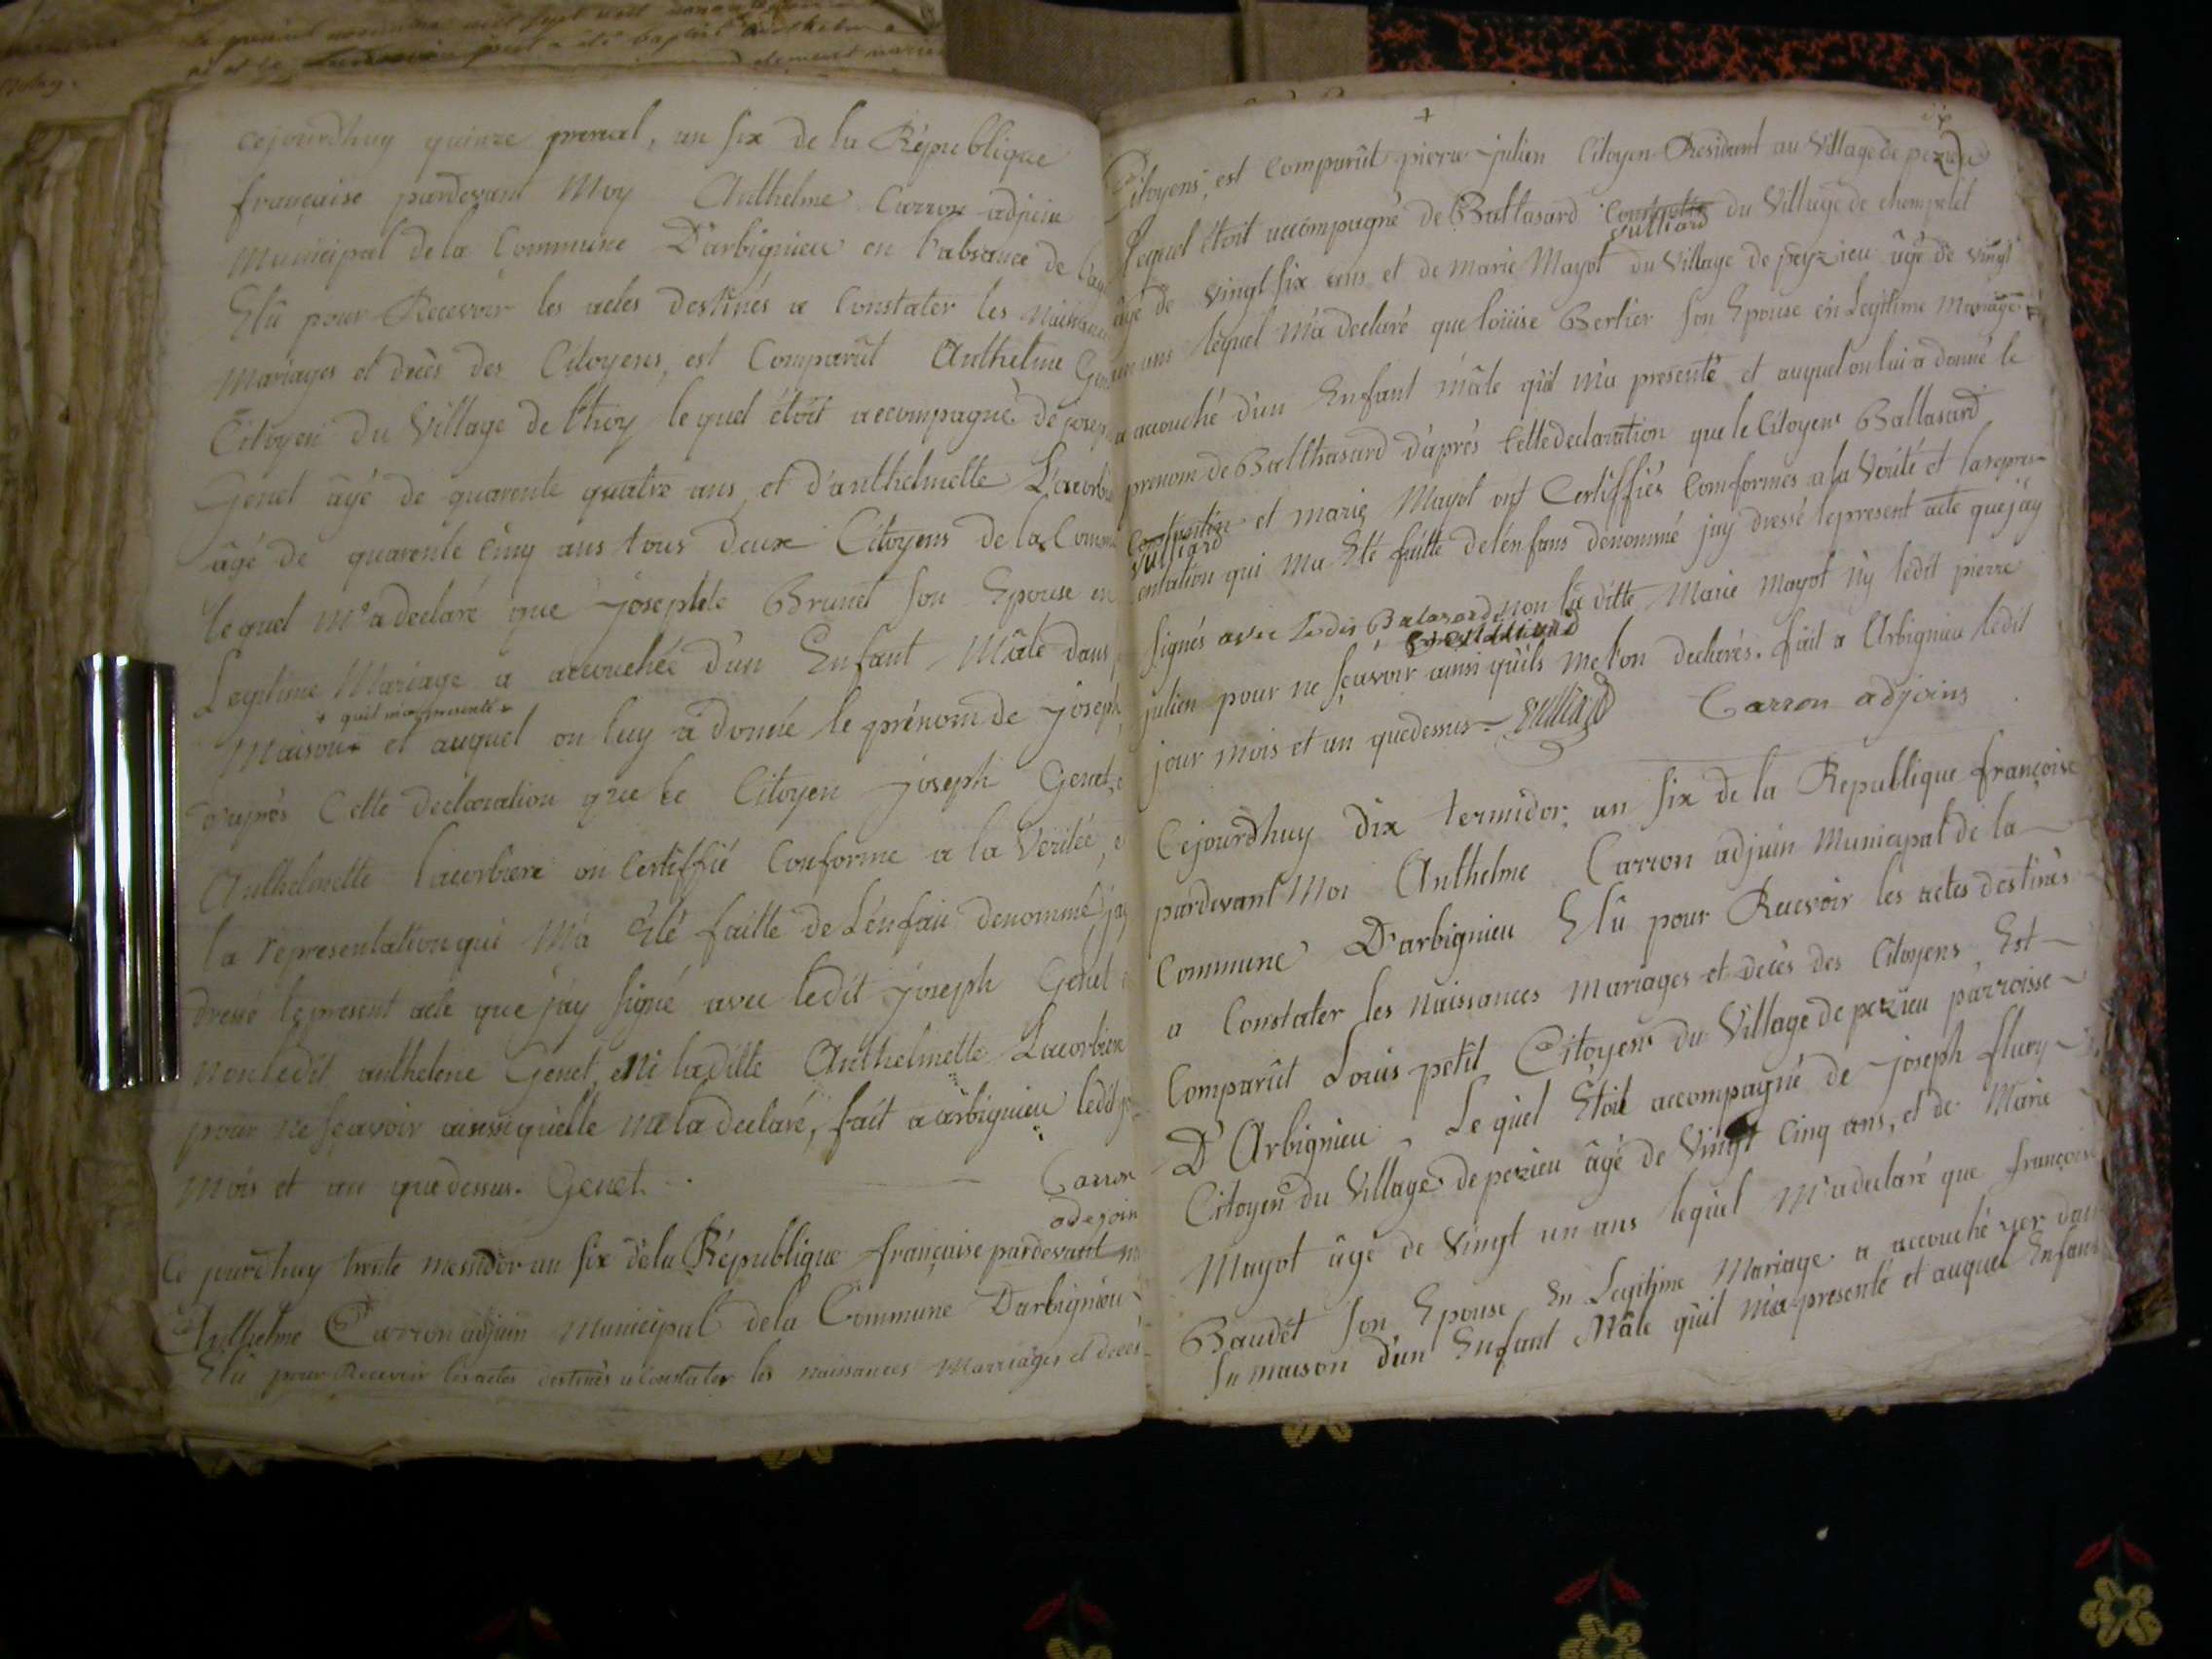 cejourdhuy quinze prereal, an six de la République
française pardevant Moy Anthelme Carron adjoin
Municipal de la Commune D'arbignieu en l'absance de
Elû pour Recevoir les actes destinés a Constater les Naissances
Mariages et decès des Citoyens, est Comparût Anthelme
Citoyen du Village de lequel étoit accompagné de joseph
Genet âgé de quarente quatre ans, et d'anthelmette
âgé de quarente cinq ans tous deux Citoyens de la
lequel M'a declaré que josephte Brunet son Epouse en
Legitime Mariage a accouchée d'un Enfant Mâle dans
+ quil ma presenté +
Maison + et auquel on luy a donné le prénom de joseph
d'après Cette declaration que le Citoyen joseph Genet,
Anthelmette Lacorbiere on Certiffié Conforme a la Verité,
la representation qui M'a Eté faitte de L'enfan denommé, jay
dressé le present acte que j'ay signé avec ledit joseph Genet
non ledit anthelme Genet, Ni laditte Anthelmette Lacorbiere
pour ne sçavoir ainssi quielle me la declaré, fait a arbignieu ledit
Mois et an que dessus. Genet.
Carron
adejoin
Ce jourdhuy trente messidor an six de la République française pardevant
Anthelme Carron adjuin Municipal de la Commune Darbignieu
Elû pour Recevoir les actes destinés a Constater les naissances Marriages et decès
Citoyens, est Comparût pierre julien Citoyen Residant au Village de pezieu
lequel étoit accompagné de Baltasard du Village de chempetel
Vulliard
âgé de vingt six ans et de Marie Mayot du Village de peyzieu âgé de vingt
ans lequel M'a declaré que loüise Bertier son Epouse en Legitime Mariage
a accouché d'un Enfant mâle qu'il m'a presenté et auquel on lui a donné le
prenom de Balthasard d'après Cette declaration que le Citoyens Baltasard
et marie Mayot ont Certiffiés Comformes a la Verité et la repres-
Vulliard
entation qui ma Eté faitte de lénfans denommé jay dressé le present acte que j'ay
signés avec ledis Balasard non la ditte Marie mayot ny ledit pierre
julien pour ne sçavoir ainsi quils me l'on declarés. fait a Arbignieu ledit
jour mois et an que dessus - Vulliard Carron adjoins
Cejourdhuy dix termidor, an six de la Republique françoise
pardevant Moi Anthelme Carron adjuin Municipal de la
Commune D'arbignieu Elû pour Recevoir les actes destinés
a Constater les Naissances Mariages et decès des Citoyens, Est
Comparût Louis petit Citoyens du Village de pezieu parroisse
D'Arbignieu, Le quel Etoit accompagné de joseph flury
Citoyen du Village de pezieu âgé de Vingt Cinq ans, et de Marie
Mayot âgé de Vingt un ans lequel M'a declaré que françoise
Baudet son Epouse En Legitime Mariage a accouché yer dan
sa maison d'un Enfant Mâle qu'il m'a presenté et auquel Enfant